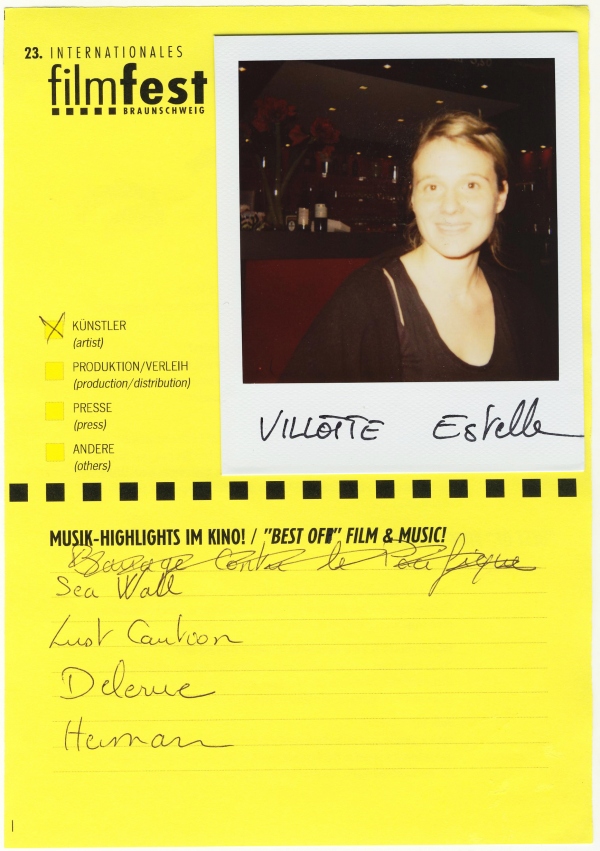 23. INTERNATIONALES
filmfest
BRAUNSCHWEIG
KÜNSTLER
(artist)
PRODUKTION/VERLEIH
(production/distribution)
PRESSE
(press)
ANDERE
(others)
VILLOTTE Estelle
MUSIK-HIGHLIGHTS IM KINO! / "BEST OF" FILM & MUSIC!
Barrage contre le Pacifique
Sea Wall
Lust Caution
Delerue
Herman